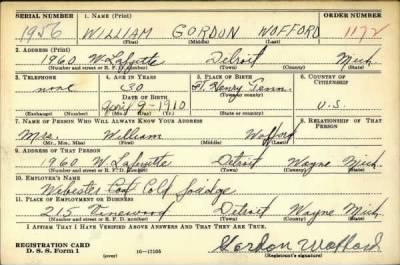 SERIAL NUMBER 1. NAME (Print) ORDER NUMBER
1956 WILLIAM GORDON WOFFORD 1172
(First) (Middle) (Last)
2. ADDRESS (Print)
1960 W. Lafyette Detroit Mich
(Number and street or R. F. D. number) (Town) (County) (State)
3. TELEPHONE 4. AGE IN YEARS 5. PLACE OF BIRTH 6. COUNTRY OF CITIZENSHIP
none 30 Ft. Henry Tenn.
DATE OF BIRTH (Town or county)
April 9 - 1910 U.S.
(Exchange) (Number) (Mo.) (Day) (Yr.) (State or country)
7. NAME OF PERSON WHO WILL ALWAYS KNOW YOUR ADDRESS 8. RELATIONSHIP OF THAT PERSON
Mrs. William Wofford
(Mr., Mrs., Miss) (First) (Middle) (Last)
9. ADDRESS OF THAT PERSON
1960 W. Lafyette Detroit Wayne Mich.
(Number and street or R. F. D. number) (Town) (County) (State)
10. EMPLOYER'S NAME
11. PLACE OF EMPLOYMENT OR BUSINESS
215 Vinewood Detroit Wayne Mich
(Number and street or R. F. D. number) (Town) (County) (State)
I AFFIRM THAT I HAVE VERIFIED ABOVE ANSWERS AND THAT THEY ARE TRUE.
REGISTRATION CARD
D. S. S. Form 1 (over) 16-17105 Gordon Wofford
(Registrant's signature)